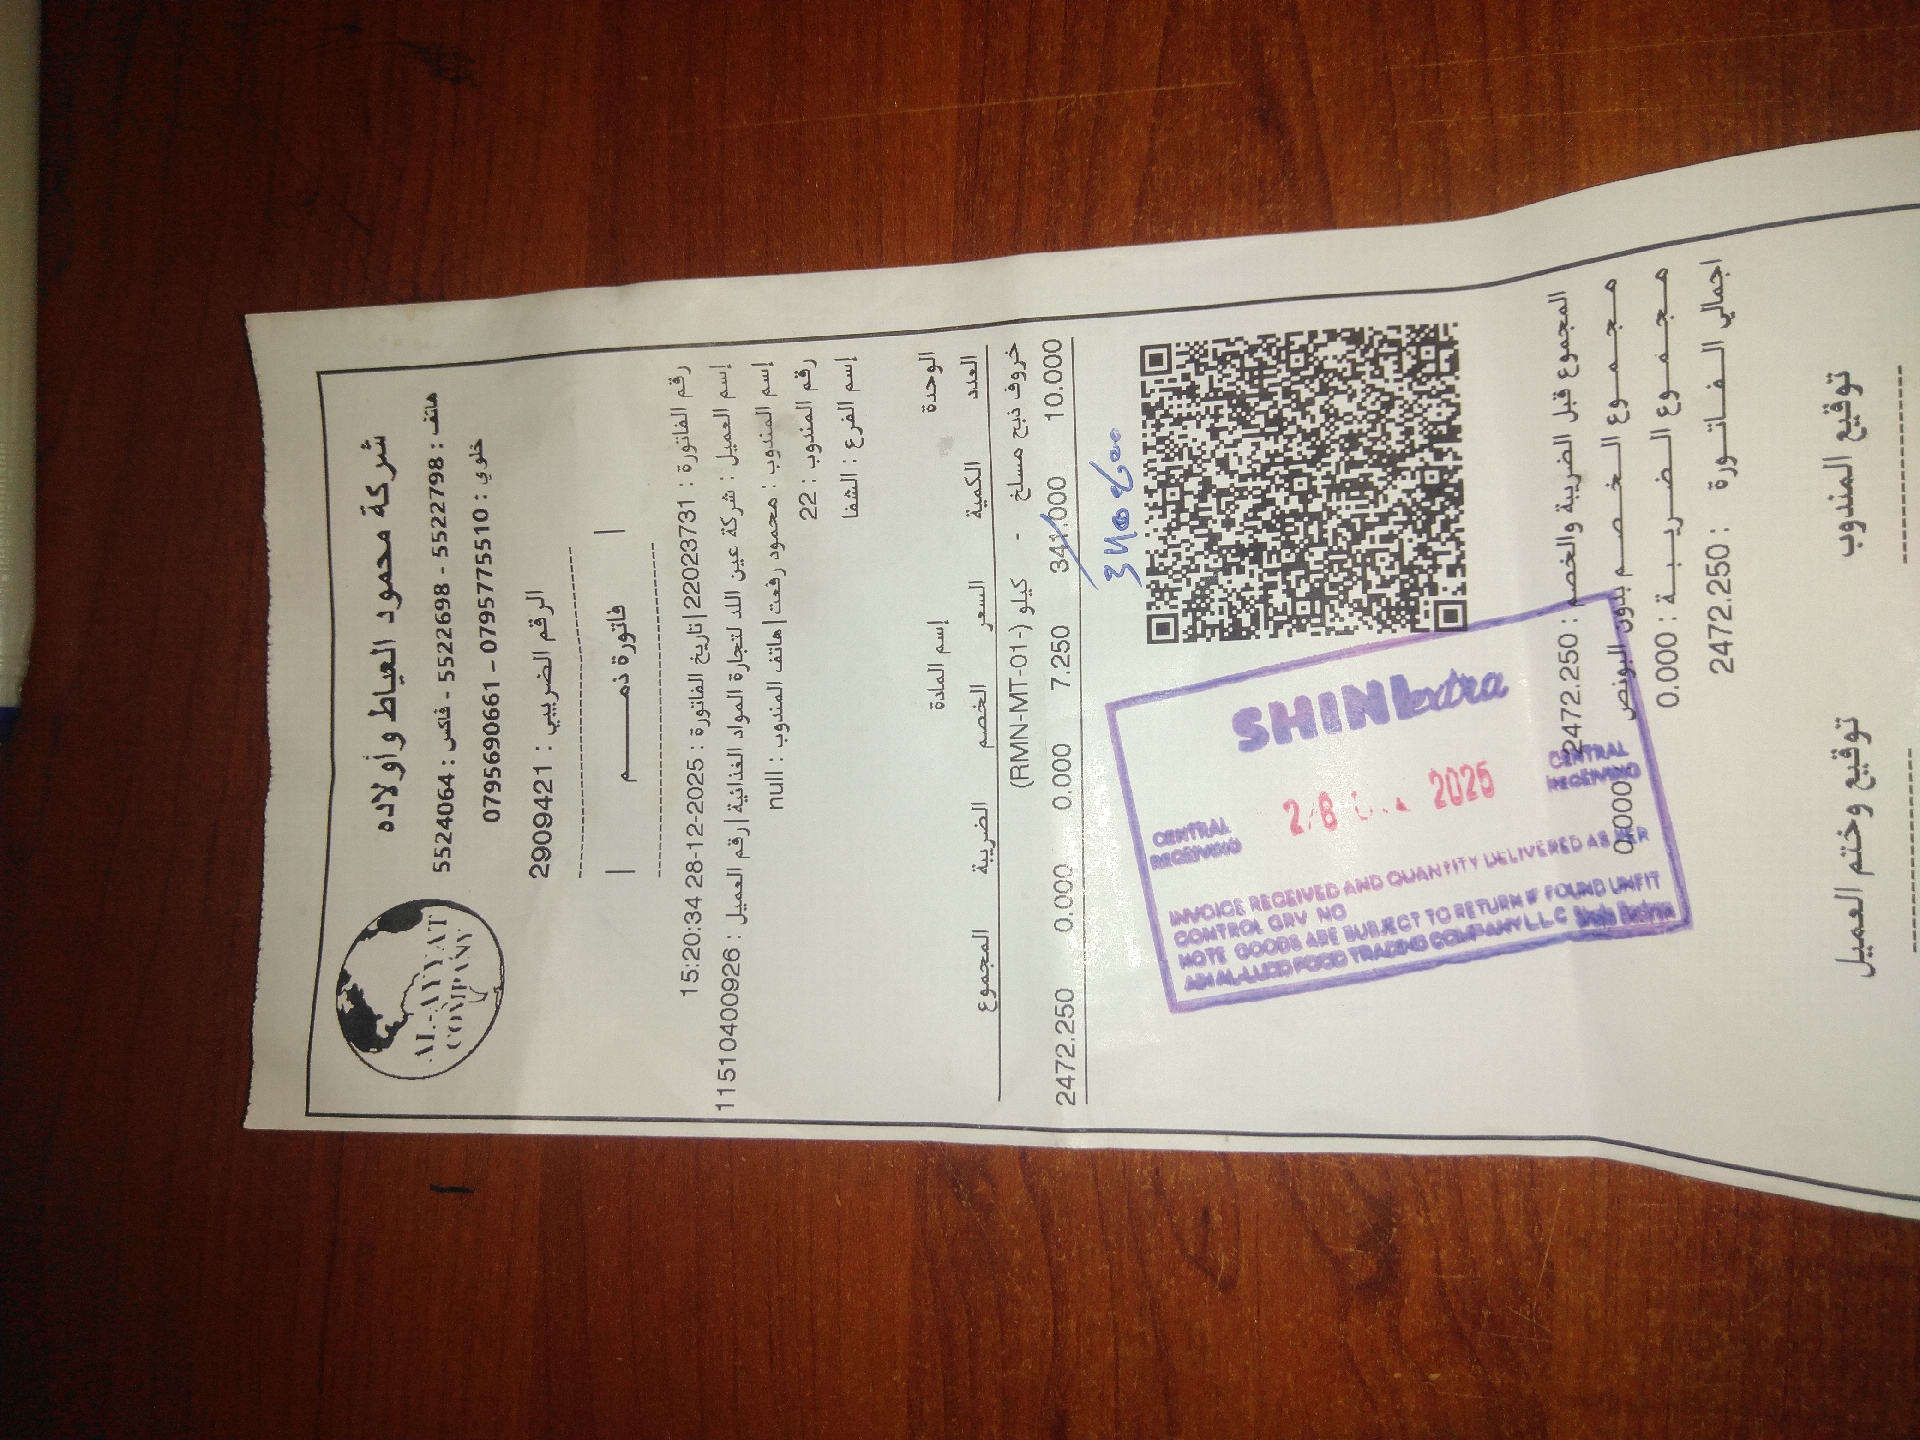 AL-AYYAT
COMPANY
شركة محمود العياط وأولاده
هاتف : 5522798 - 5522698 - فاكس : 5524064
خلوي : 0795775510 - 0795690661
الرقم الضريبي : 2909421
فاتورة ذمـــــــم
رقم الفاتورة : 22023731 | تاريخ الفاتورة : 2025-12-28 15:20:34
إسم العميل : شركة عين اللد لتجارة المواد الغذائية | رقم العميل : 11510400926
إسم المندوب : محمود رفعت | هاتف المندوب : null
رقم المندوب : 22
إسم الفرع : الشفا
الوحدة إسم المادة
العدد الكمية السعر الخصم الضريبة المجموع
خروف ذبح مسلخ - كيلو (-RMN-MT-01)
(RMN-MT-01-)
10.000 341.000 7.250 0.000 0.000 2472.250
SHINI extra
CENTRAL
RECEIVING
28 2025
CENTRAL
RECEIVING
INVOICE RECEIVED AND QUANTITY DELIVERED AS PER
CONTROL GRV NO
NOTE GOODS ARE SUBJECT TO RETURN IF FOUND UNFIT
AIN AL-LUDD FOOD TRADING COMPANY L.L.C
المجموع قبل الضريبة والخصم : 2472.250
مـجـمـوع الـخـصـم بدون البونص 0.000
مـجـمـوع الـضـريـبـة : 0.000
اجمالي الـفـاتـورة : 2472.250
توقيع المندوب توقيع وختم العميل